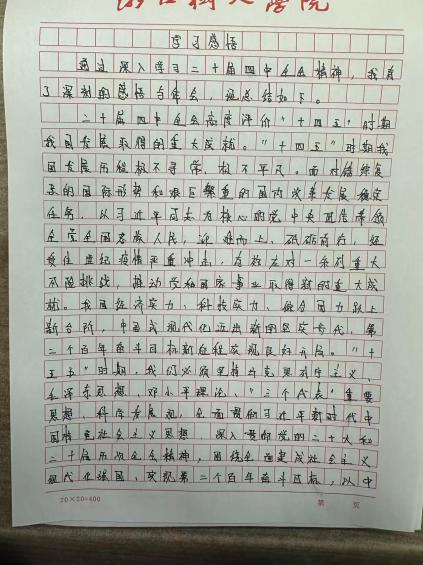 学习感悟
通过深入学习二十届四中全会精神，我有
了深刻的感悟与体会，总结如下。
二十届四中全会高度评价“十四五”时期
我国发展取得的重大成就。“十四五”时期我
国发展历程极不寻常、极不平凡。面对错综复
杂的国际形势和艰巨繁重的国内改革发展稳定
任务，以习近平同志为核心的党中央团结带领
全党全国各族人民，迎难而上、砥砺前行，经
受住世纪疫情严重冲击，有效应对一系列重大
风险挑战，推动党和国家事业取得新的重大成
就。我国经济实力、科技实力、综合国力跃上
新台阶，中国式现代化迈出新的坚实步伐，第
二个百年奋斗目标新征程实现良好开局。“十
五五”时期，我们必须坚持马克思列宁主义、
毛泽东思想、邓小平理论、“三个代表”重要
思想、科学发展观，全面贯彻习近平新时代中
国特色社会主义思想，深入贯彻党的二十大和
二十届历次全会精神，围绕全面建成社会主义
现代化强国、实现第二个百年奋斗目标，以中
20×20=400
第 页